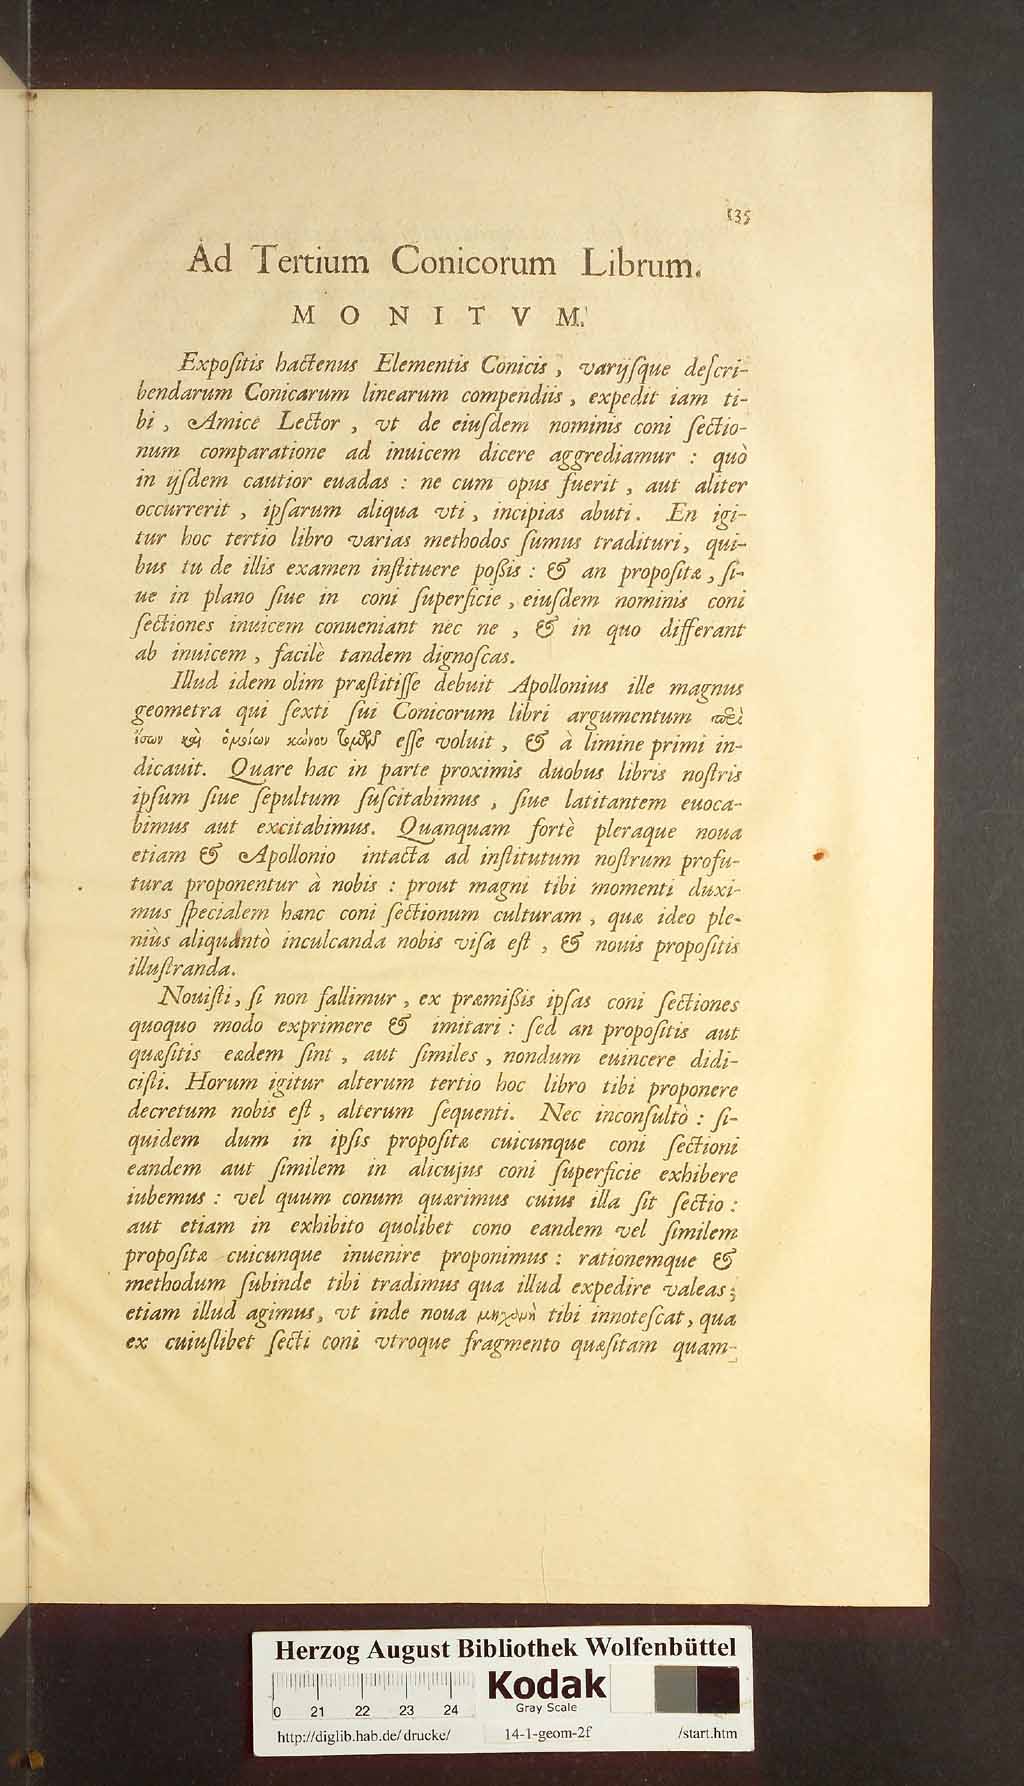 135
Ad Tertium Conicorum Librum.
MONITVM.
Expoſitis hactenus Elementis Conicis, varijſque deſcri-
bendarum Conicarum linearum compendiis, expedit iam ti-
bi, Amice Lector, vt de eiuſdem nominis coni ſectio-
num comparatione ad inuicem dicere aggrediamur : quò
in ijſdem cautior euadas : ne cum opus fuerit, aut aliter
occurrerit, ipſarum aliqua vti, incipias abuti. En igi-
tur hoc tertio libro varias methodos ſumus tradituri, qui-
bus tu de illis examen inſtituere poßis : & an propoſitæ, ſi-
ue in plano ſiue in coni ſuperficie, eiuſdem nominis coni
ſectiones inuicem conueniant nec ne, & in quo differant
ab inuicem, facilè tandem dignoſcas.
Illud idem olim præſtitiſſe debuit Apollonius ille magnus
geometra qui ſexti ſui Conicorum libri argumentum περὶ
ἴσων καὶ ὁμοίων κώνου τομῶν eſſe voluit, & à limine primi in-
dicauit. Quare hac in parte proximis duobus libris noſtris
ipſum ſiue ſepultum ſuſcitabimus, ſiue latitantem euoca-
bimus aut excitabimus. Quanquam fortè pleraque noua
etiam & Apollonio intacta ad inſtitutum noſtrum profu-
tura proponentur à nobis : prout magni tibi momenti duxi-
mus ſpecialem hanc coni ſectionum culturam, quæ ideo ple-
niùs aliquantò inculcanda nobis viſa eſt, & nouis propoſitis
illuſtranda.
Nouiſti, ſi non fallimur, ex præmißis ipſas coni ſectiones
quoquo modo exprimere & imitari : ſed an propoſitis aut
quæſitis eædem ſint, aut ſimiles, nondum euincere didi-
ciſti. Horum igitur alterum tertio hoc libro tibi proponere
decretum nobis eſt, alterum ſequenti. Nec inconſultò : ſi-
quidem dum in ipſis propoſitæ cuicunque coni ſectioni
eandem aut ſimilem in alicujus coni ſuperficie exhibere
iubemus : vel quum conum quærimus cuius illa ſit ſectio :
aut etiam in exhibito quolibet cono eandem vel ſimilem
propoſitæ cuicunque inuenire proponimus : rationemque &
methodum ſubinde tibi tradimus qua illud expedire valeas;
etiam illud agimus, vt inde noua μηχανὴ tibi innoteſcat, qua
ex cuiuſlibet ſecti coni vtroque fragmento quæſitam quam-
Herzog August Bibliothek Wolfenbüttel
Kodak
Gray Scale
0 21 22 23 24
http://diglib.hab.de/drucke/ 14-1-geom-2f /start.htm